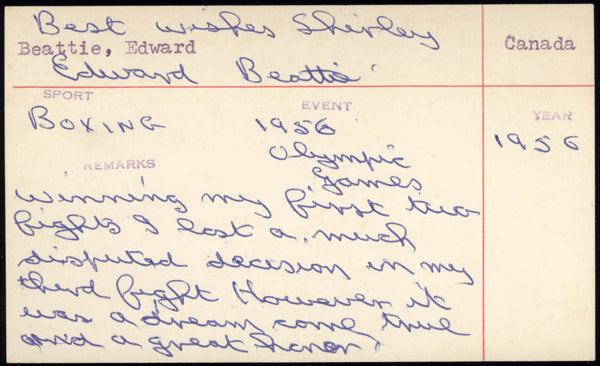 Best wishes Shirley
Beattie, Edward
Canada
Edward Beattie
SPORT
EVENT
YEAR
BOXING
1956
Olympic
Games
1956
REMARKS
winning my first two
fights I lost a much
disputed decision in my
third fight However it
was a dream come true
and a great honor.